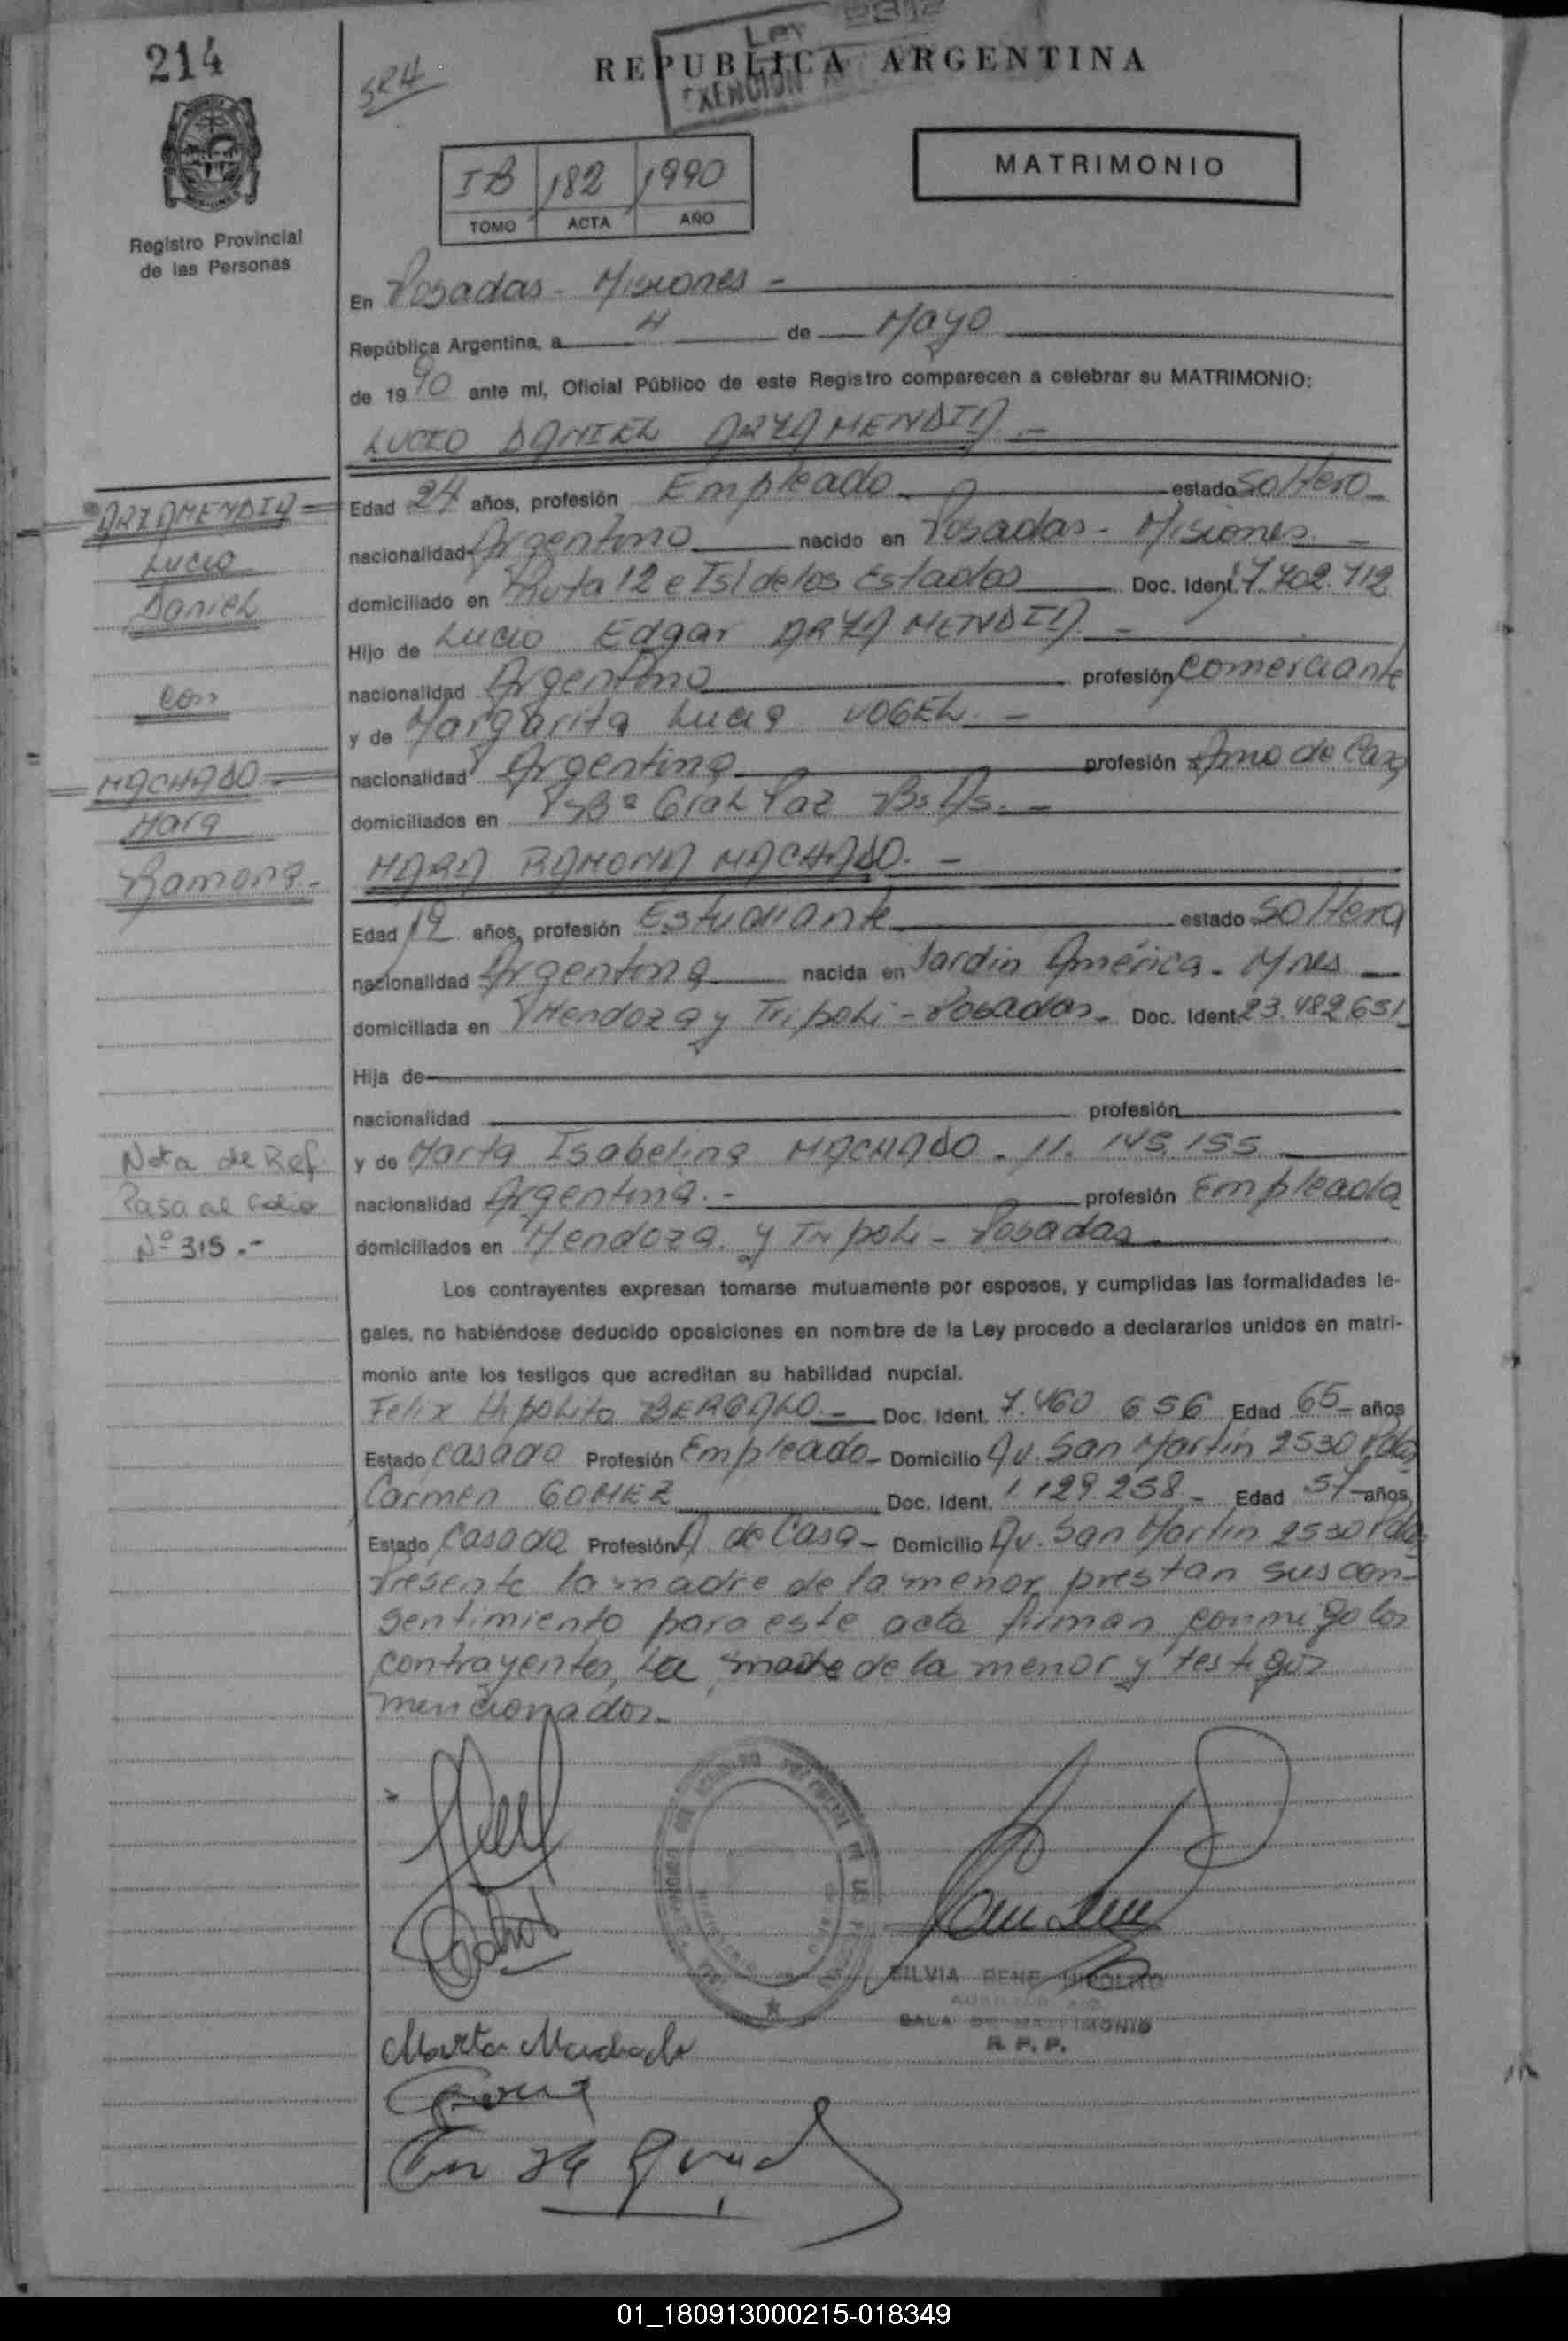 214
524
Ley 2812
EXENCION
REPUBLICA ARGENTINA
Registro Provincial
de las Personas
IB 182 1990
TOMO ACTA AÑO
MATRIMONIO
En Posadas - Misiones -
República Argentina, a 4 de Mayo
de 1990 ante mí, Oficial Público de este Registro comparecen a celebrar su MATRIMONIO:
LUCIO DANIEL ARZAMENDIA. -
ARZAMENDIA
Lucio
Daniel
con
MACHADO
Mara
Ramona.-
Edad 24 años, profesión Empleado estado Soltero
nacionalidad Argentino nacido en Posadas - Misiones. -
domiciliado en Ruta 12 e Isl de los Estados Doc. Ident. 17.702.712
Hijo de Lucio Edgar ARZAMENDIA -
nacionalidad Argentino profesión Comerciante
y de Margarita Lucia VOGEL. -
nacionalidad Argentina profesión Ama de Casa
domiciliados en Bº Gral Paz Bs As. -
MARA RAMONA MACHADO. -
Edad 19 años, profesión Estudiante estado Soltera
nacionalidad Argentina nacida en Jardin América - Mnes
domiciliada en Mendoza y Tripoli - Posadas - Doc. Ident. 23.482.651
Hija de
nacionalidad profesión
y de Marta Isabelina MACHADO - 11.145.155
nacionalidad Argentina. - profesión Empleada
domiciliados en Mendoza y Tripoli - Posadas
Nota de Ref.
Pasa al folio
Nº 315.-
Los contrayentes expresan tomarse mutuamente por esposos, y cumplidas las formalidades le-
gales, no habiéndose deducido oposiciones en nombre de la Ley procedo a declararlos unidos en matri-
monio ante los testigos que acreditan su habilidad nupcial.
Felix Hipolito BERGALO. - Doc. Ident. 7.460.656 Edad 65 años
Estado Casado Profesión Empleado - Domicilio Av. San Martín 2530 Pdas
Carmen GOMEZ Doc. Ident. 1.129.258 - Edad 57 años
Estado Casada Profesión A. de Casa - Domicilio Av. San Martín 2530 Pdas
Presente la madre de la menor prestan sus con-
sentimiento para este acto firman conmigo los
contrayentes, La madre de la menor y testigos
mencionados.-
Marta Machado
SILVIA RENE HIPOLITO
SALA DE MATRIMONIO
R. P. P.
01_180913000215-018349